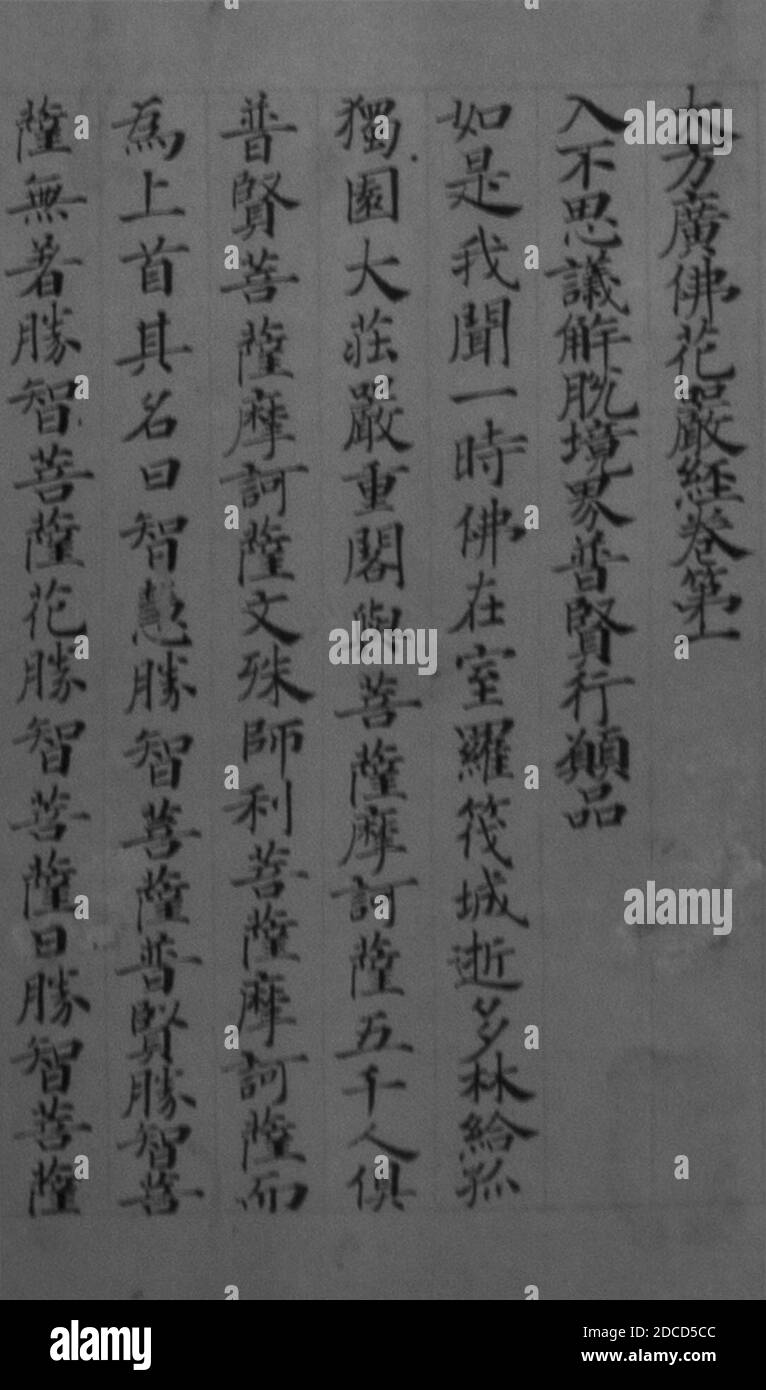 大方廣佛花嚴經卷第一
入不思議解脫境界普賢行願品
如是我聞一時佛在室羅筏城逝多林給孤
獨園大莊嚴重閣與菩薩摩訶薩五千人俱
普賢菩薩摩訶薩文殊師利菩薩摩訶薩而
為上首其名曰智慧勝智菩薩普賢勝智菩
薩無著勝智菩薩花勝智菩薩日勝智菩薩
alamy
alamy
alamy
alamy
Image ID: 2DCD5CC
www.alamy.com